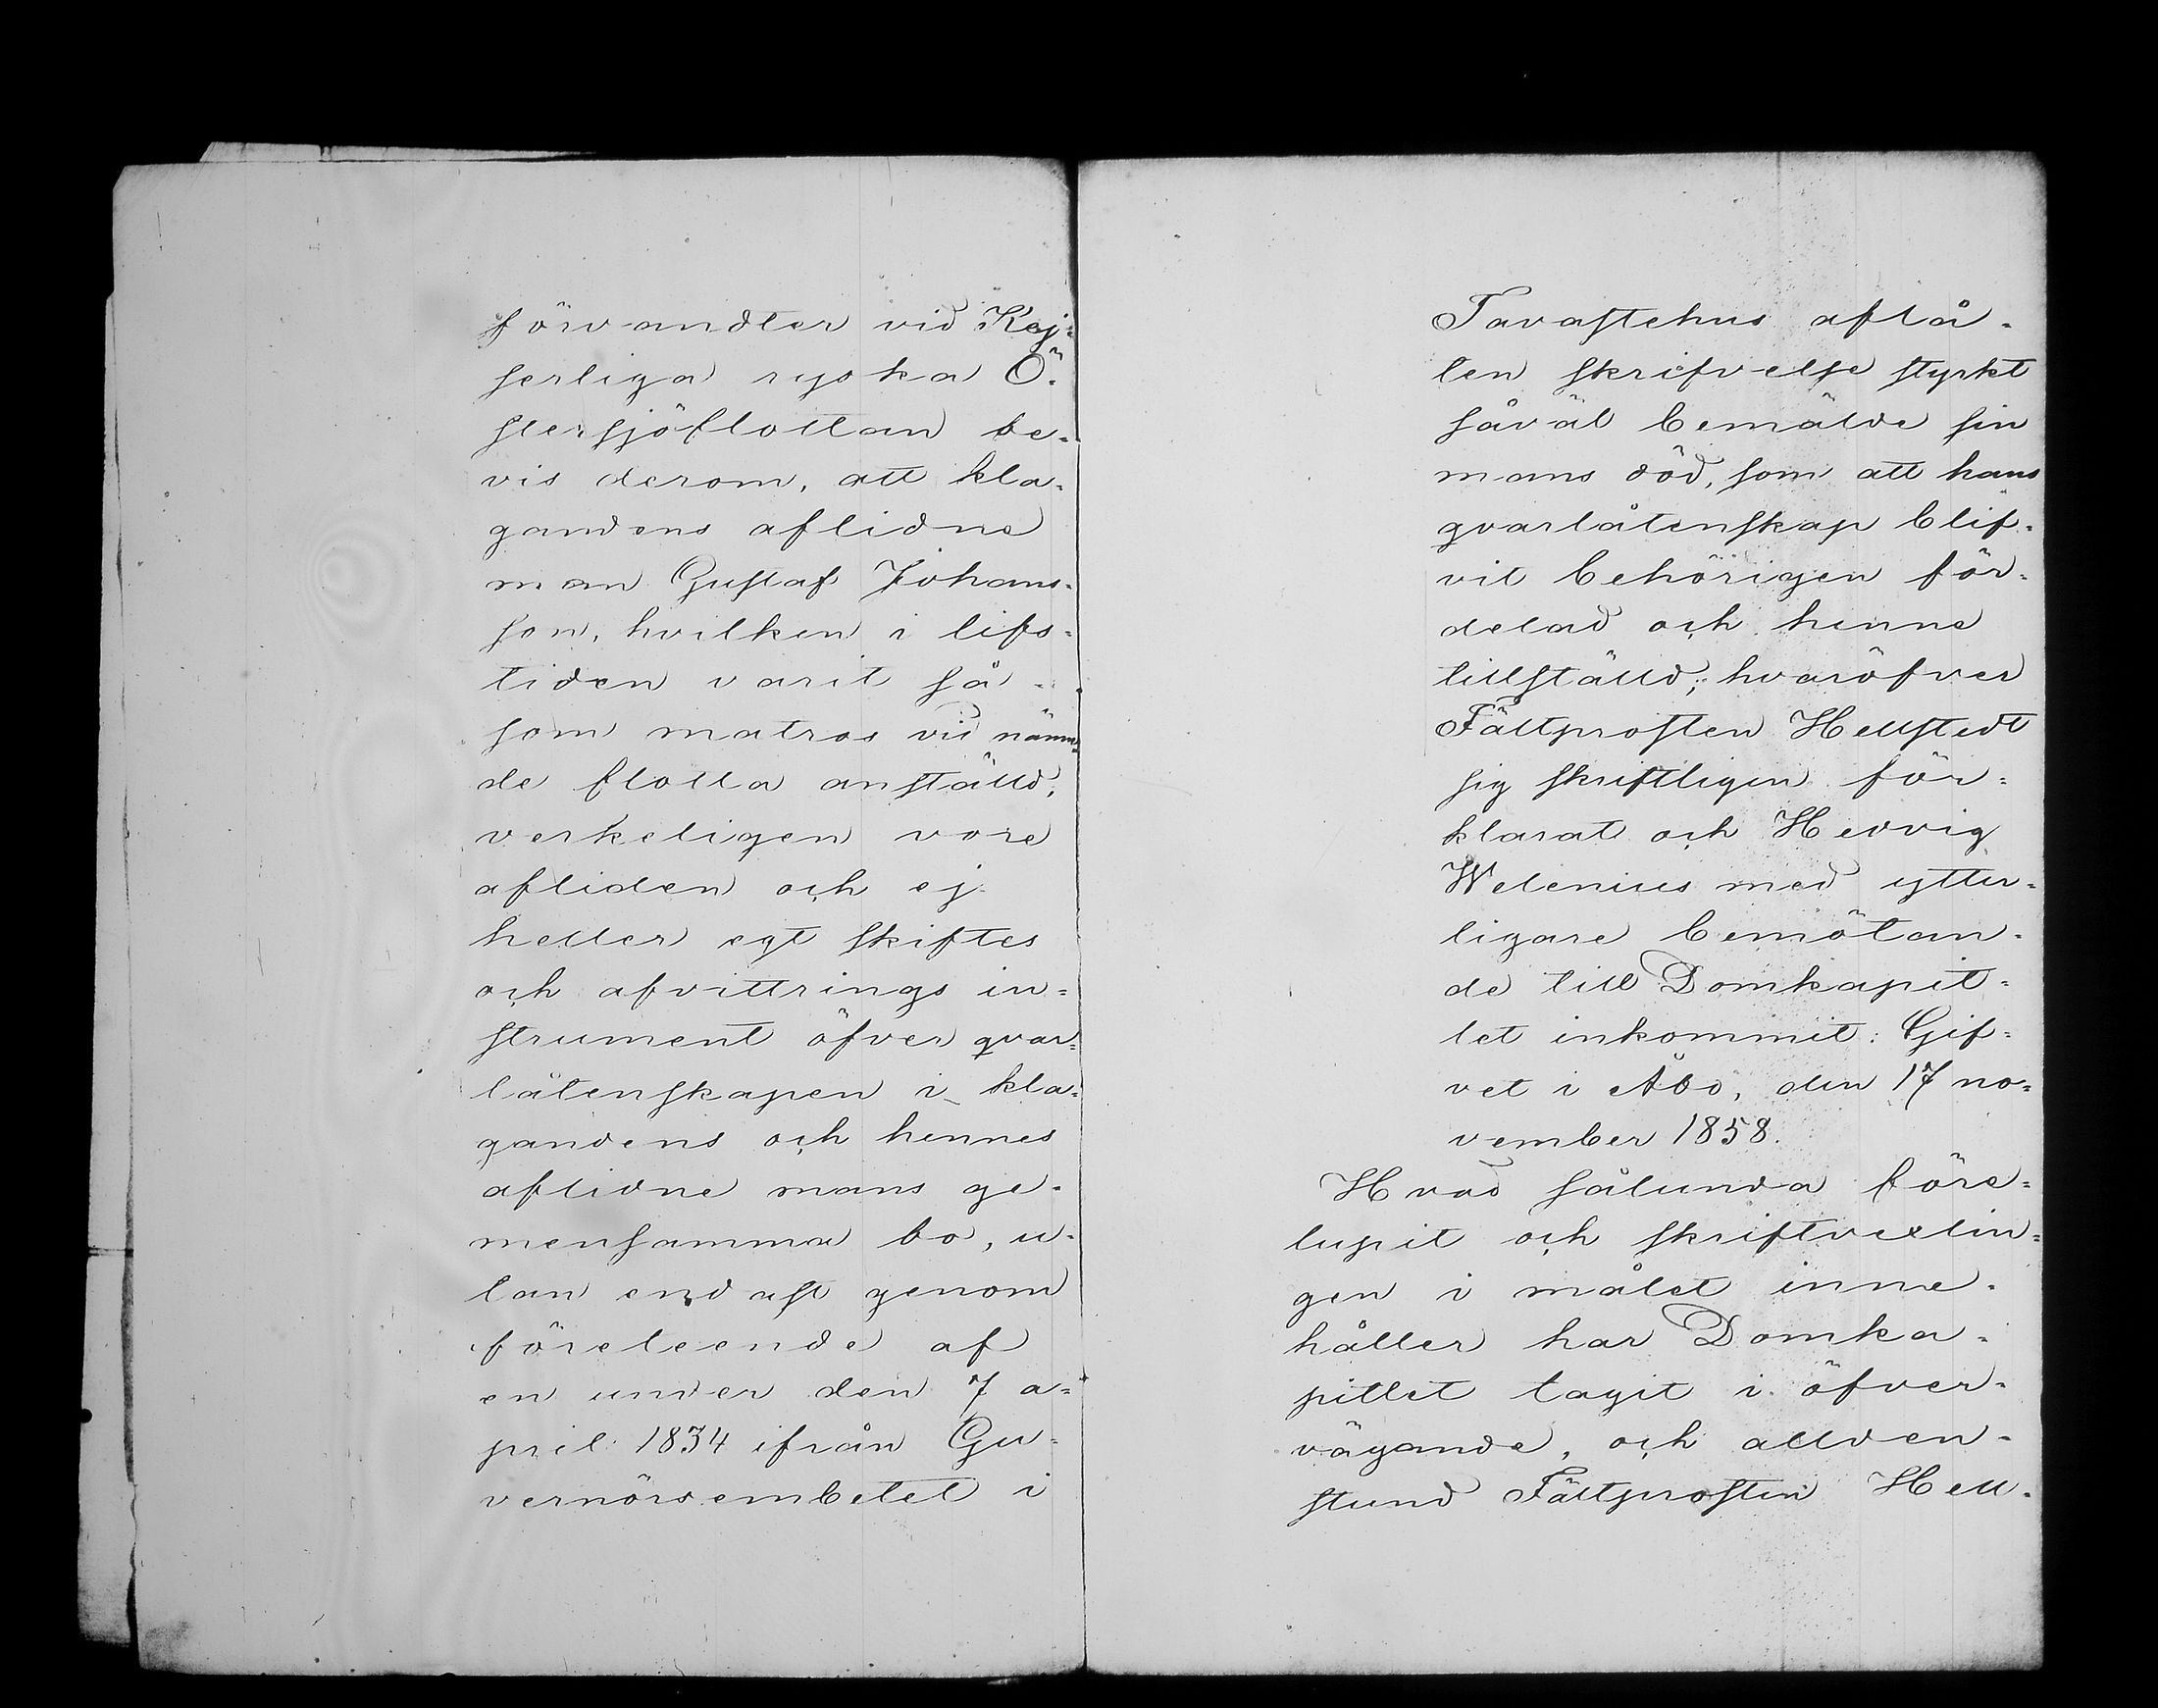 förvandter vid Kej=
serliga ryska Ö.
stersjöflottan be-
vis derom, att kla-
gandens aflidne
man Gustaf Johans-
son, hvilken i lifs-
tiden varit så-
som matros vid nämn=
de flotta anställd,
verkeligen vore
afliden och ej
heller egt skiftes
och afvittrings in=
strument öfver qvar=
låtenskapen i kla=
gandens och hennes
aflidne mans ge-
mensamma bo, u-
tan endast genom
företeende af
en under den 7 a=
pril 1834 ifrån Gu-
vernörsembetet i
Tavastehus aflå-
ten skrifvelse styrkt
såväl bemälde sin
mans död, som att hans
qvarlåtenskap blif-
vit behörigen för-
delad och henne
tillställd; hvaröfver
Fältprosten Hellstedt
sig skriftligen för=
klarat och Hedvig
Welenius med ytter-
ligare bemötan-
de till Domkapit=
let inkommit: Gif=
vet i Åbo, den 17 no=
vember 1858.
Hvad sålunda före=
lupit och skriftvexlin=
gen i målet inne-
håller har Domka-
pitlet tagit i öfver-
vägande, och allden-
stund Fältprosten Hell-